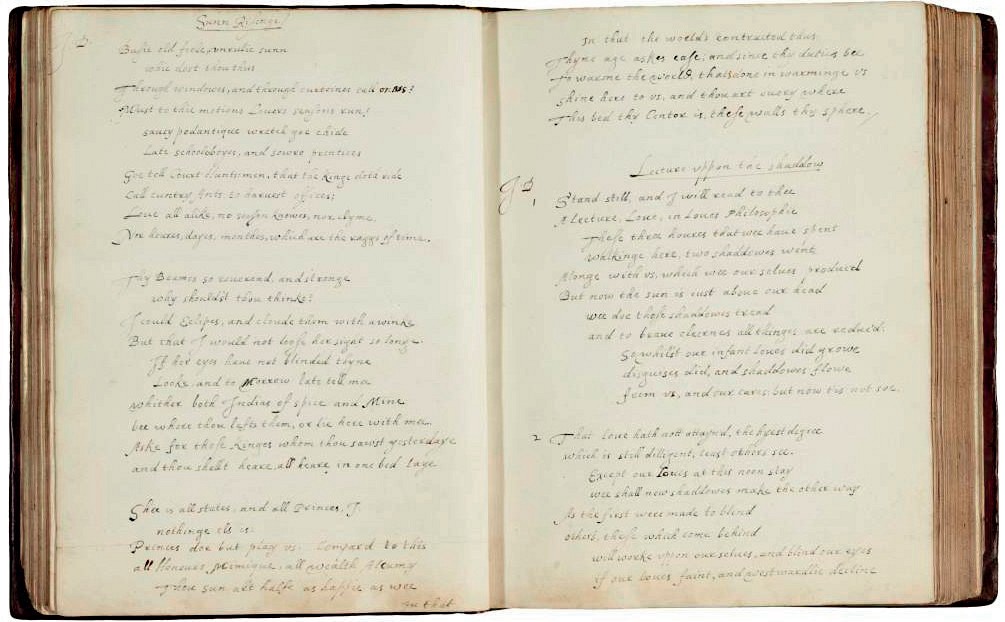 Sunn Risinge
J D.
Busie old foole, unrulie sunn
whie dost thou thus
Through windowes, and through curtaines call on us?
Must to thie motions Louers seasons run?
saucy pedantique wretch goe chide
Late schooleboyes, and sowre prentices
Goe tell Court Huntsmen, that the Kinge doth ride
Call cuntry Ants to haruest offices;
Loue all alike, no season knowes, nor clyme,
Nor houres, dayes, months, which are the raggs of time.
Thy Beames so reuerend, and stronge
why shouldst thou thinke?
I could Eclipse, and cloude them with a winke
But that I would not loose her sight so longe.
If her eyes haue not blinded thyne
Looke, and to Morrow late tell me
whither both Indias of spice and Mine
bee where thou lefts them, or lie here with mee.
Aske for those Kinges whom thou sawst yesterdaye
and thou shallt heare, all heare in one bed laye
Shee is all states, and all Princes, I,
nothinge els is.
Princes doe but play us. Compard to this
all Honours Mimique, all wealth Alcumy
Thou sun art halfe as happie as wee
in that
In that the worlds contracted thus.
Thyne age askes ease, and since thy duties bee
To warme the world, thats done in warminge vs
shine here to vs, and thou art euery where
This bed thy Center is, these walls thy sphere.
Lecture vppon the shaddow
J D.
1
Stand still, and I will read to thee
A lecture, Loue, in Loues Philosophie
These three houres that wee haue spent
walkinge here, two shaddowes went
Alonge with vs, which wee our selues produced
But now the sun is iust aboue our head
wee doe those shaddowes tread
and to braue cleernes all things are reduc'd.
So whilst our infant loues did growe
disguises did, and shaddowes flowe
from vs, and our cares; but now tis not soe.
2 That loue hath nott attaynd, the hyest degree
which is still dilligent, least others see.
Except our loues at this noon stay
wee shall new shaddowes make the other way
As the first were made to blind
others, these which come behind
will worke vppon our selues, and blind our eyes
if our loues faint, and westwardlie decline